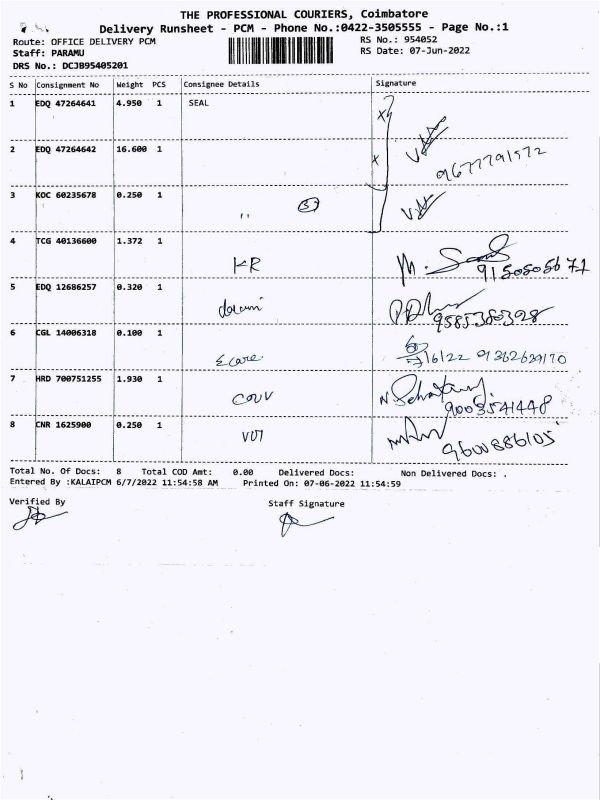 THE PROFESSIONAL COURIERS, Coimbatore
Delivery Runsheet - PCM - Phone No.:0422-3505555 - Page No.:1
Route: OFFICE DELIVERY PCM RS No.: 954052
Staff: PARAMU RS Date: 07-Jun-2022
DRS No.: DCJB95405201
S No Consignment No Weight PCS Consignee Details Signature
1 EDQ 47264641 4.950 1 SEAL
2 EDQ 47264642 16.600 1 9677791572
3 KOC 60235678 0.250 1 " (3)
4 TCG 40136600 1.372 1 KR
5 EDQ 12686257 0.320 1 9585358398
6 CGL 14006318 0.100 1 Ecare 7/6/22 91362639170
7 HRD 700751255 1.930 1 9003541448
8 CNR 1625900 0.250 1 9600886105
Total No. Of Docs: 8 Total COD Amt: 0.00 Delivered Docs: Non Delivered Docs: .
Entered By :KALAIPCM 6/7/2022 11:54:58 AM Printed On: 07-06-2022 11:54:59
Verified By Staff Signature